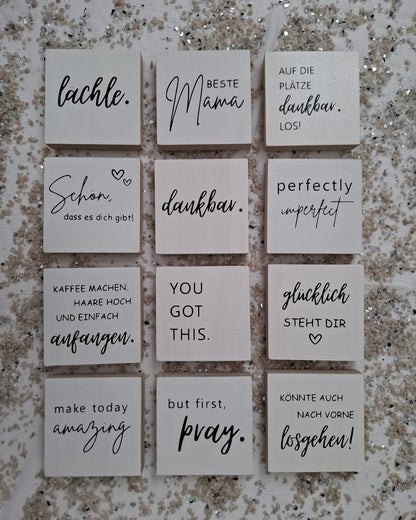 lächle.
BESTE
Mama
AUF DIE
PLÄTZE
dankbar.
LOS!
Schön,
dass es dich gibt!
dankbar.
perfectly
imperfect
KAFFEE MACHEN,
HAARE HOCH
UND EINFACH
anfangen.
YOU
GOT
THIS.
glücklich
STEHT DIR
make today
amazing
but first,
pray.
KÖNNTE AUCH
NACH VORNE
losgehen!